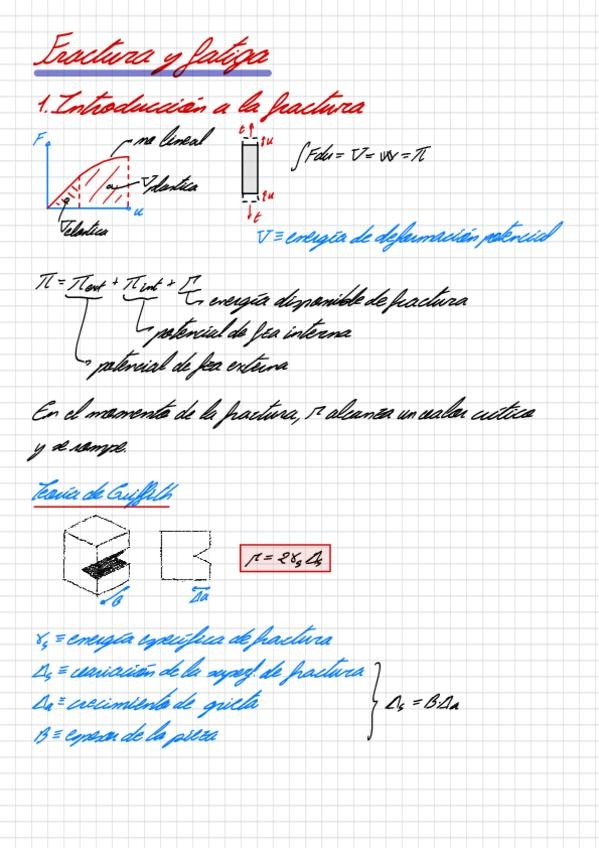 Fractura y fatiga
1. Introducción a la fractura
F
no lineal
t
u
∫Fdu = U = W = π
U plástica
u
U elástica
u
t
U ≡ energía de deformación potencial
π = π ext + π int + Γ
energía disponible de fractura
potencial de fza interna
potencial de fza externa
En el momento de la fractura, Γ alcanza un valor crítico
y se rompe.
Teoría de Griffith
Γ = 2γs Δs
B
Δa
γs ≡ energía específica de fractura
Δs ≡ variación de la superf. de fractura
Δa ≡ crecimiento de grieta
Δs = BΔa
B ≡ espesor de la pieza